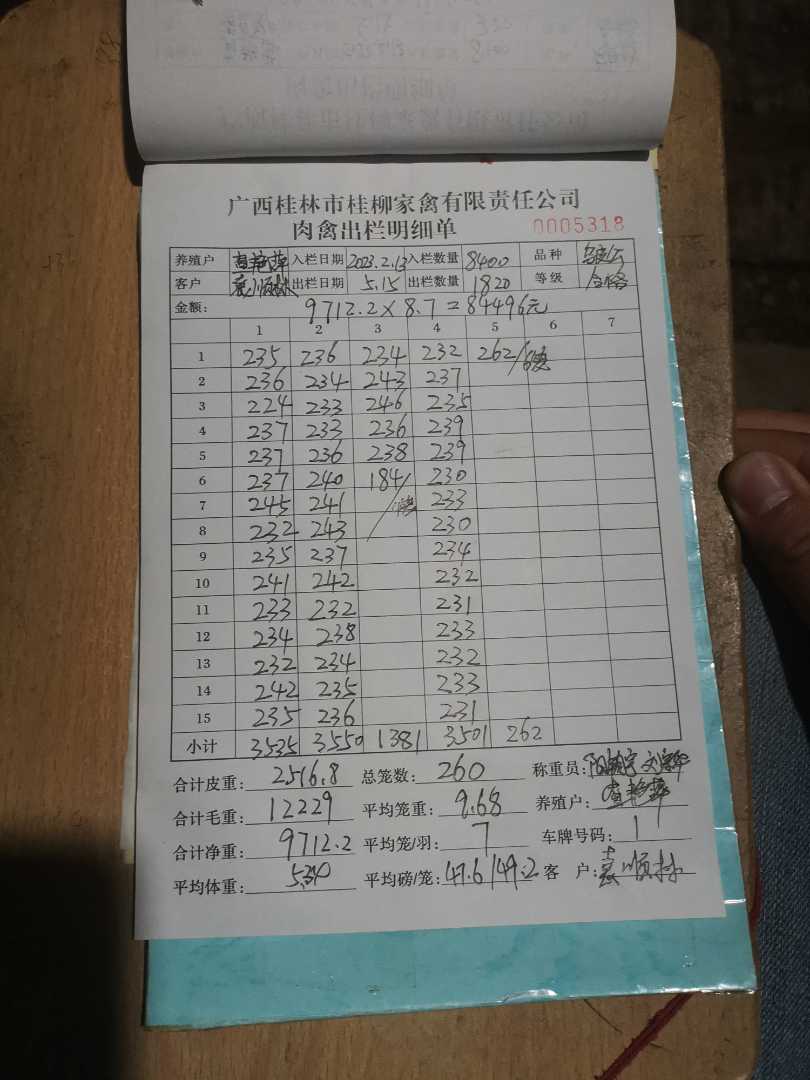 广西桂林市桂柳家禽有限责任公司
肉禽出栏明细单 0005318
养殖户 入栏日期 2023.2.13 入栏数量 8400 品种
客户 顺林 出栏日期 5.15 出栏数量 1820 等级 合格
金额: 9712.2×8.7=84496元
1 2 3 4 5 6 7
1 235 236 234 232 262/
2 236 234 243 237
3 224 233 246 235
4 237 233 236 239
5 237 236 238 239
6 237 240 184/ 230
7 245 241 233
8 232 243 230
9 235 237 234
10 241 242 232
11 233 232 231
12 234 238 233
13 232 234 232
14 242 235 233
15 235 236 231
小计 3535 3550 1381 3501 262
合计皮重: 2516.8 总笼数: 260 称重员:
合计毛重: 12229 平均笼重: 9.68 养殖户:
合计净重: 9712.2 平均笼/羽: 7 车牌号码: 1
平均体重: 5.34 平均磅/笼: 47.6/49.2 客 户: 顺林